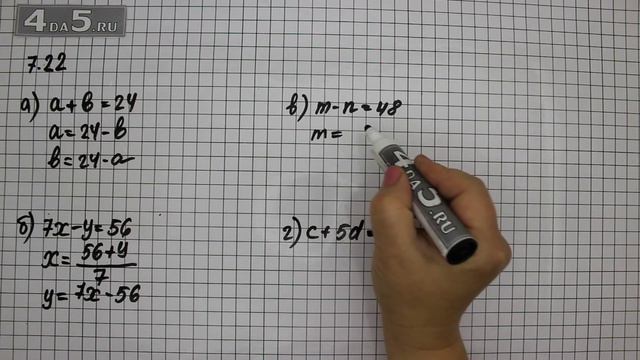 4DA5.RU
7.22
а) a + b = 24
a = 24 - b
b = 24 - a
б) 7x - y = 56
x = 56 + y / 7
y = 7x - 56
в) m - n = 48
m =
г) c + 5d
4DA5.RU